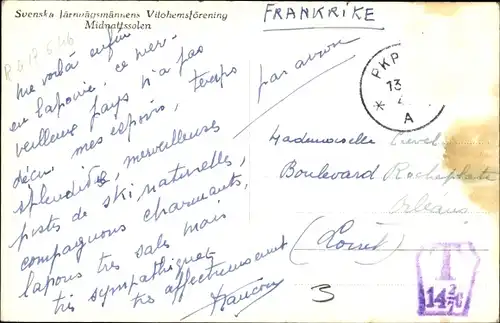 Svenska Järnvägsmännens Vilohemsförening
Midnattssolen
FRANKRIKE
me voilà enfin
en laponie, ce mer-
veilleux pays n'a pas
déçu mes espoirs, temps
splendide, merveilleuses
pistes de ski naturelles,
compagnons charmants,
lapons très sales mais
très sympathiques
très affectueusement
par avion
PKP
13
A
Mademoiselle
Boulevard Rocheplatte
Orléans
(Loiret)
3
T
14 2/7 c